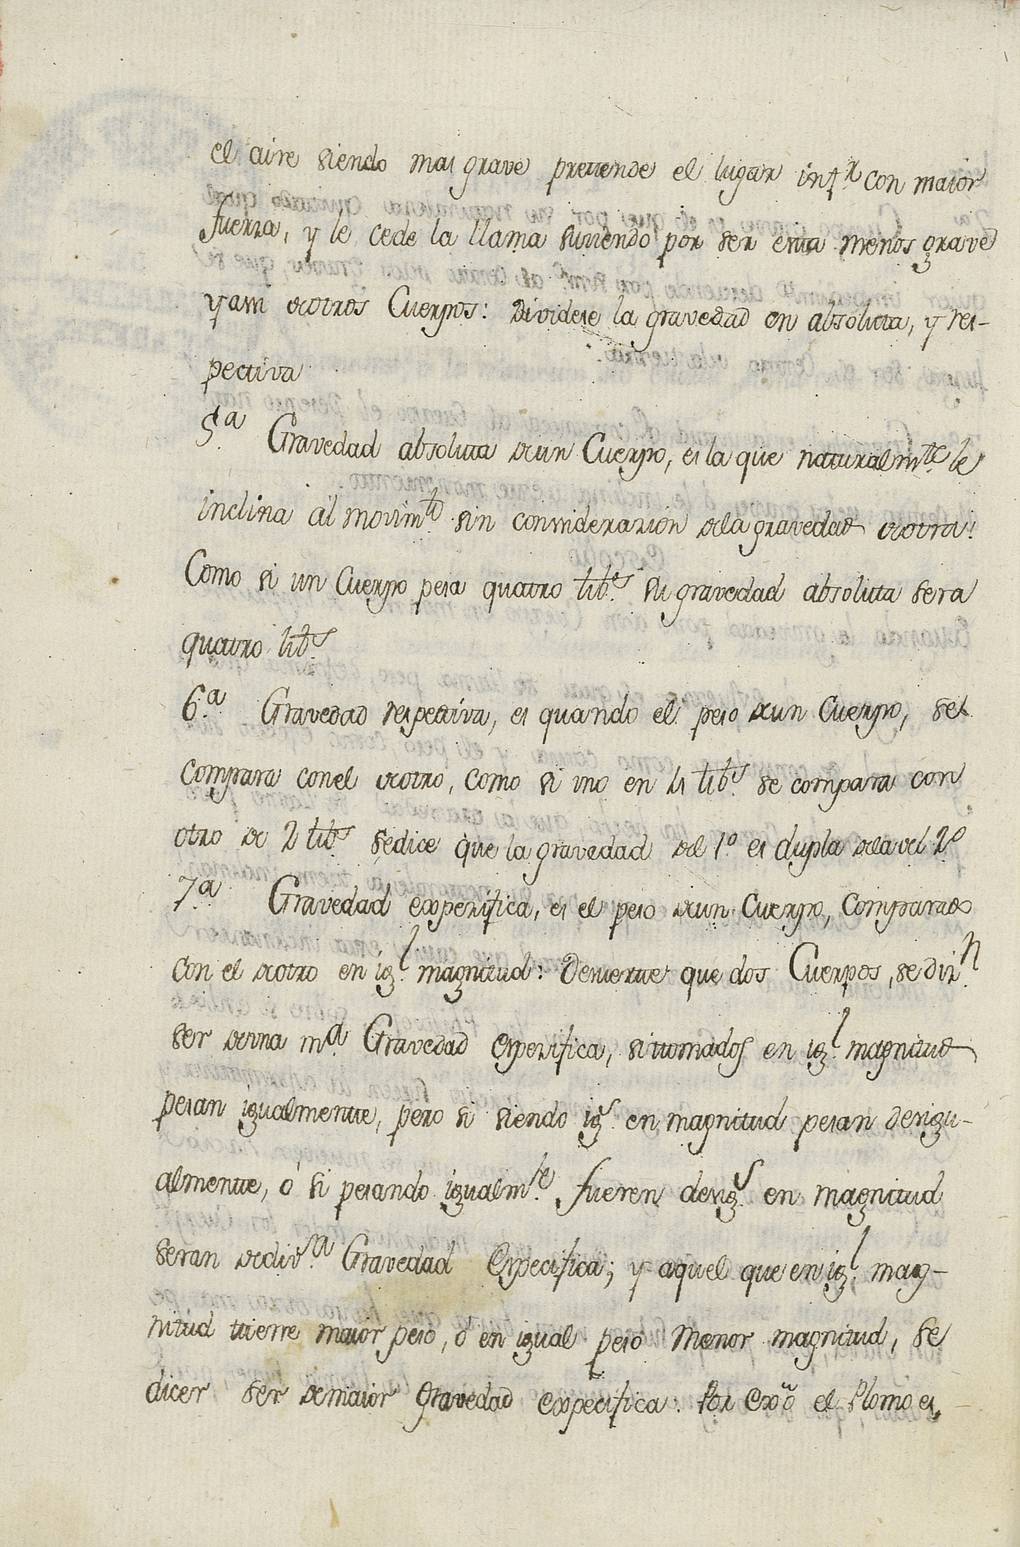 el aire siendo mas grave pretende el lugar infr. con maior
fuerza, y le cede la llama suviendo por ser esta menos grave
y asi de otros Cuerpos: Dividese la gravedad en absoluta, y res-
pectiva
5.a Gravedad absoluta de un Cuerpo, es la que naturalmte. le
inclina al movimto. sin considerazión de la gravedad de otra:
Como si un Cuerpo pesa quatro libs. su gravedad absoluta sera
quatro libs.
6.a Gravedad respectiva, es quando el peso de un Cuerpo, se
compara con el de otro, como si uno en 4 libs. se compara con
otro de 2 libs. se dice que la gravedad del 1.o es dupla de la del 2.o
7.a Gravedad expezifica, es el peso de un Cuerpo, comparado
con el de otro en igl. magnitud: De suerte que dos Cuerpos, se dirn.
ser de una ma. Gravedad espezifica, si tomados en igl. magnitud
pesan igualmente, pero si siendo igs. en magnitud pesan desigu-
almente, ó si pesando igualmte. fueren desigs. en magnitud
seran de divsa. Gravedad Especifica; y aquel que en igl. mag-
nitud tuviere maior peso, ó en igual peso menor magnitud, se
dicer ser de maior gravedad expecifica. Por Exo. el Plomo es,